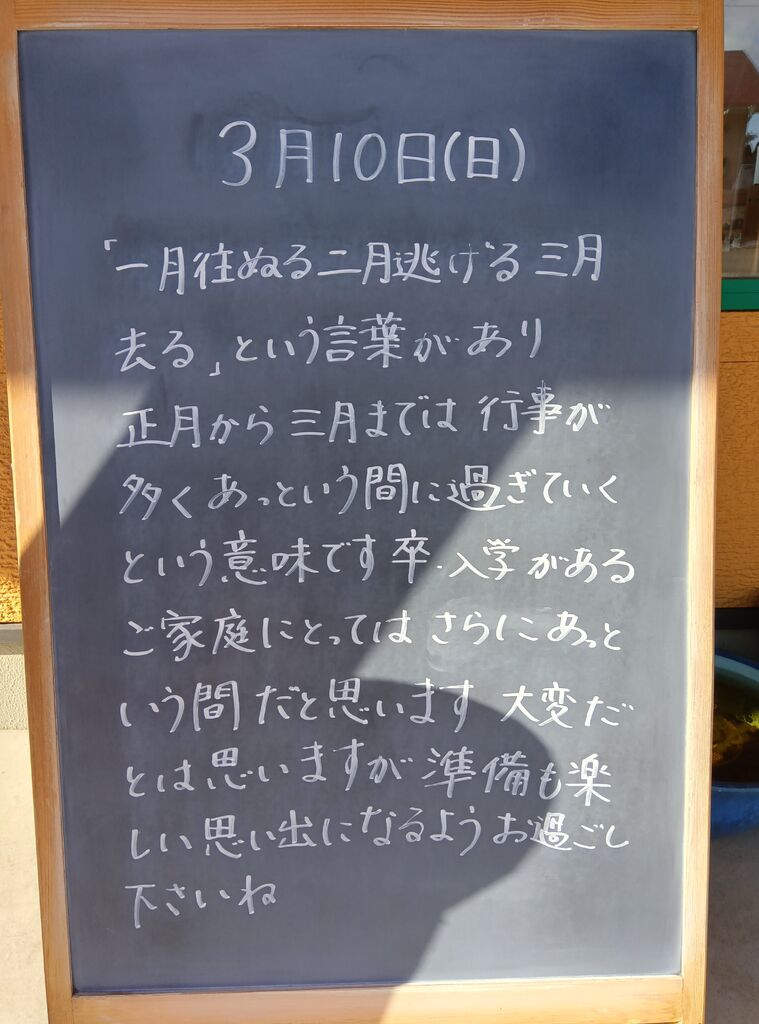 3月10日(日)
「一月往ぬる二月逃げる三月
去る」という言葉があり
正月から三月までは行事が
多くあっという間に過ぎていく
という意味です卒・入学がある
ご家庭にとってはさらにあっと
いう間だと思います大変だ
とは思いますが準備も楽
しい思い出になるようお過ごし
下さいね